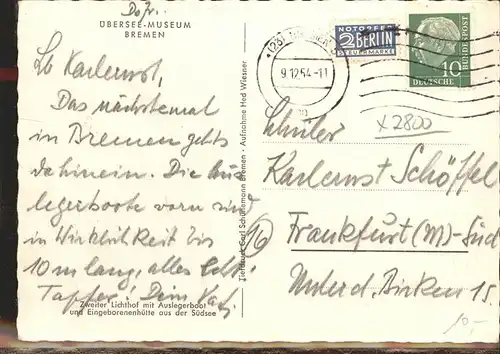 ÜBERSEE-MUSEUM
BREMEN
Lb Karlernst,
Das nächstemal
in Bremen gehts
da hinein. Die Aus
legerboote vorn sind
in Wirklichkeit bis
10 m lang, alles echt!
Tapfer! Dein
Zweiter Lichthof mit Auslegerboot
und Eingeborenenhütte aus der Südsee
Tiefdruck Carl Schünemann Bremen · Aufnahme Hed Wiesner
9.12.54.-11
NOTOPFER
2 BERLIN
STEUERMARKE
DEUTSCHE
BUNDESPOST
10
x2800
Schüler
Karlernst Schöffel
16
Frankfurt (M)-Süd
Unter d. Birken 15
10.-